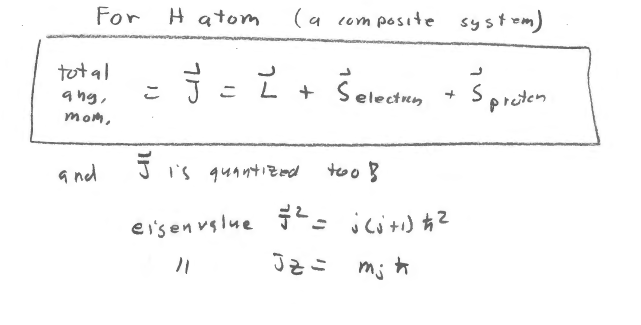 For H atom (a composite system)
total ang. mom. = J⃗ = L⃗ + S⃗ electron + S⃗ proton
and J⃗ is quantized too!
eigenvalue J⃗² = j(j+1) ħ²
" Jz = mj ħ